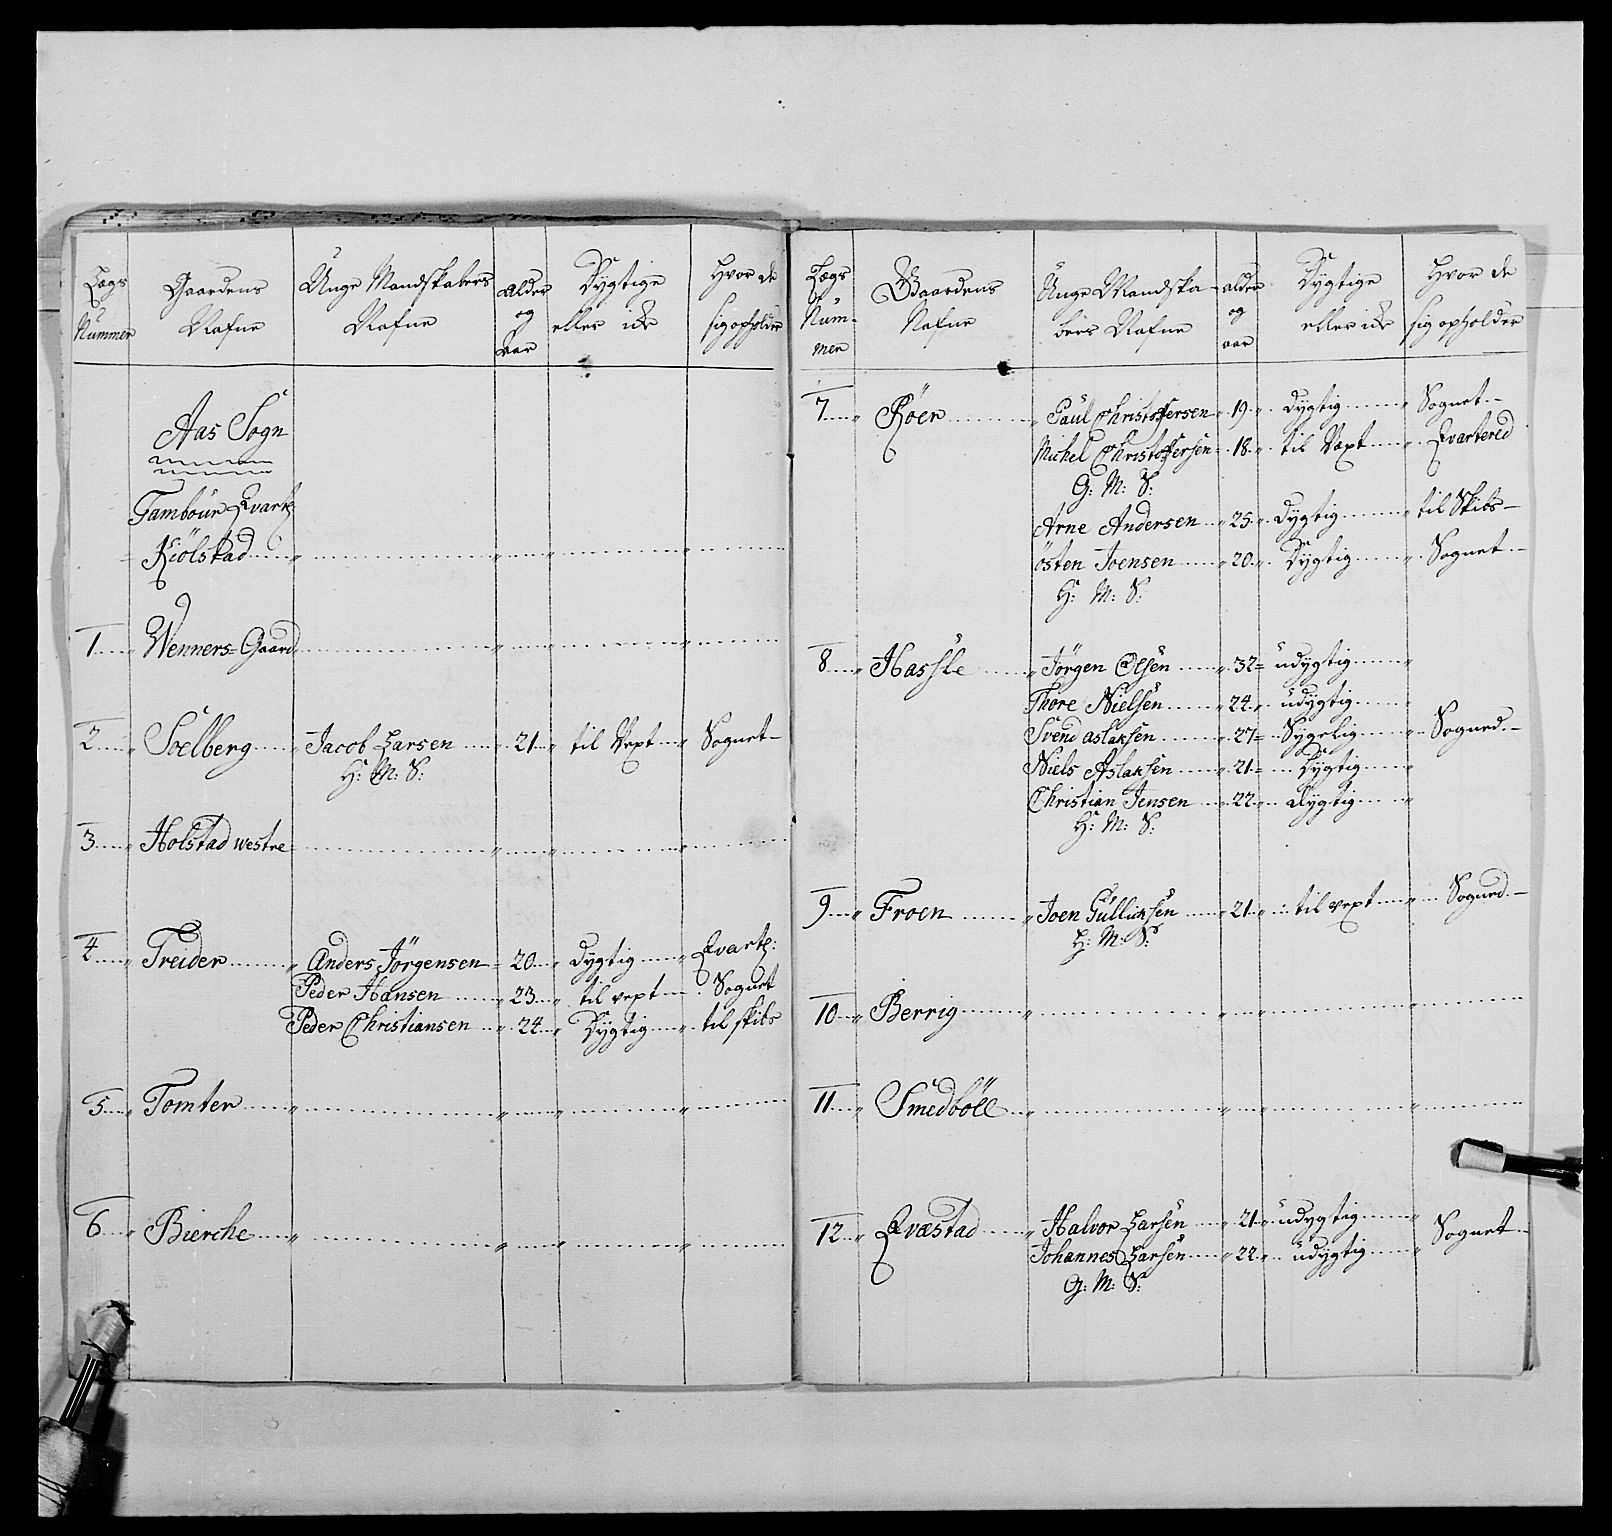 Lægs Nummer | Gaardens Nafne | Unge Mandskabers Nafne | Alder og Aar | Dygtige eller icke | Hvor de sig opholder
Aas Sogn
Tambour Qvart:
Kiölstad
1 Wenners=Gaard
2 Söelberg Jacob Larsen 21 til Vext Sognet
H: M: S:
3 Holstad westre
4 Treider Anders Jörgensen 20 Dygtig Qvart:
Peder Hansen 23 til vext Sognet
Peder Christiansen 24 Dygtig til skibs
5 Tomter
6 Bierche
Lægs Nummer | Gaardens Nafne | Unge Mandskabers Nafne | alder og aar | Dygtige eller icke | Hvor de sig opholder
7 Röer Paul Christoffersen 19 Dygtig Sognet
Michel Christoffersen 18 til Vext Qvartered
G: M: S:
Arne Andersen 25 Dygtig til Skibs
östen Joensen 20 Dygtig Sognet
H: M: S:
8 Hassle Jörgen Olsen 32 udygtig
Thore Nielsen 24 udygtig
Svend aslaksen 27 Sygelig Sogned
Niels Aslaksen 21 Dygtig
Christian Jensen 22 Dygtig
H: M: S:
9 Froen Joen Gulliksen 21 til vext Sogned
H: M: S:
10 Berrig
11 Smedböll
12 Qvæstad Halvor Larsen 21 udygtig Sognet
Johannes Larsen 22 udygtig
G: M: S: